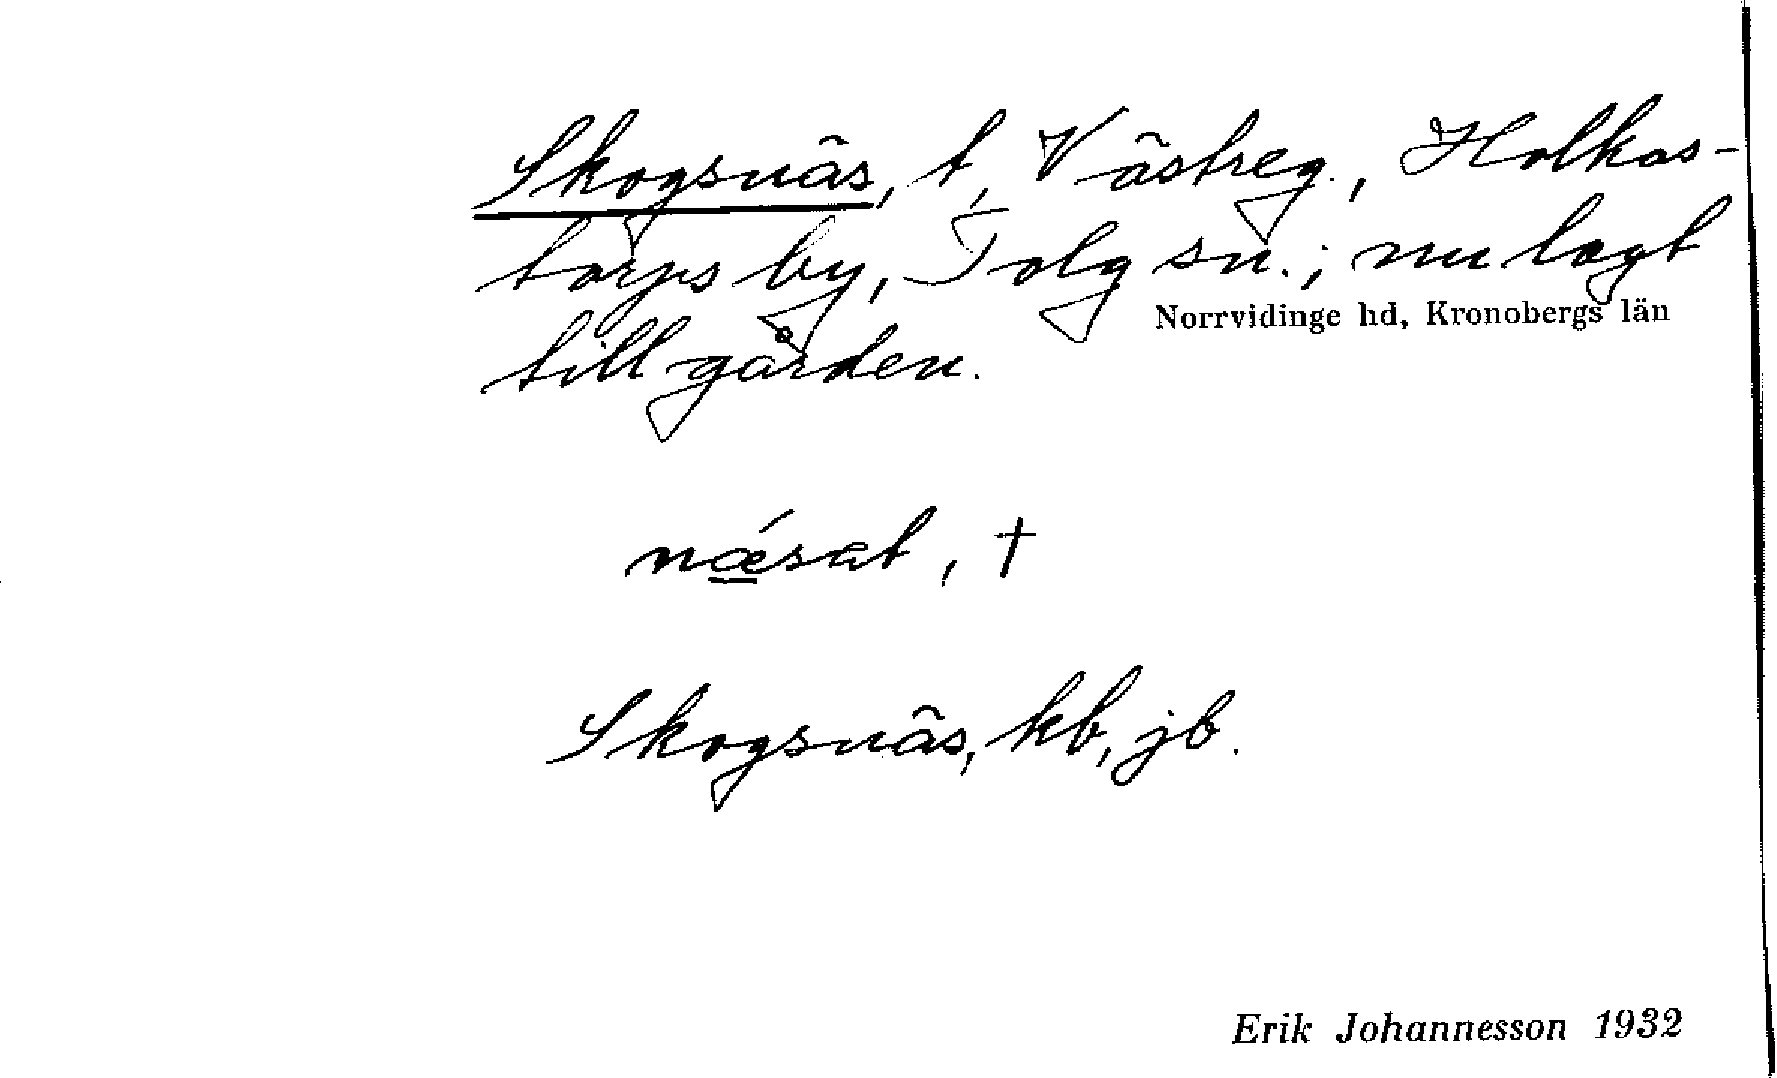 Skogsnäs, t, Västreg., Holkas-
torps by, Tolg sn.; nu lagt
Norrvidinge hd, Kronobergs län
till gården.
nǽsət, †
Skogsnäs, kb, jb.
Erik Johannesson 1932